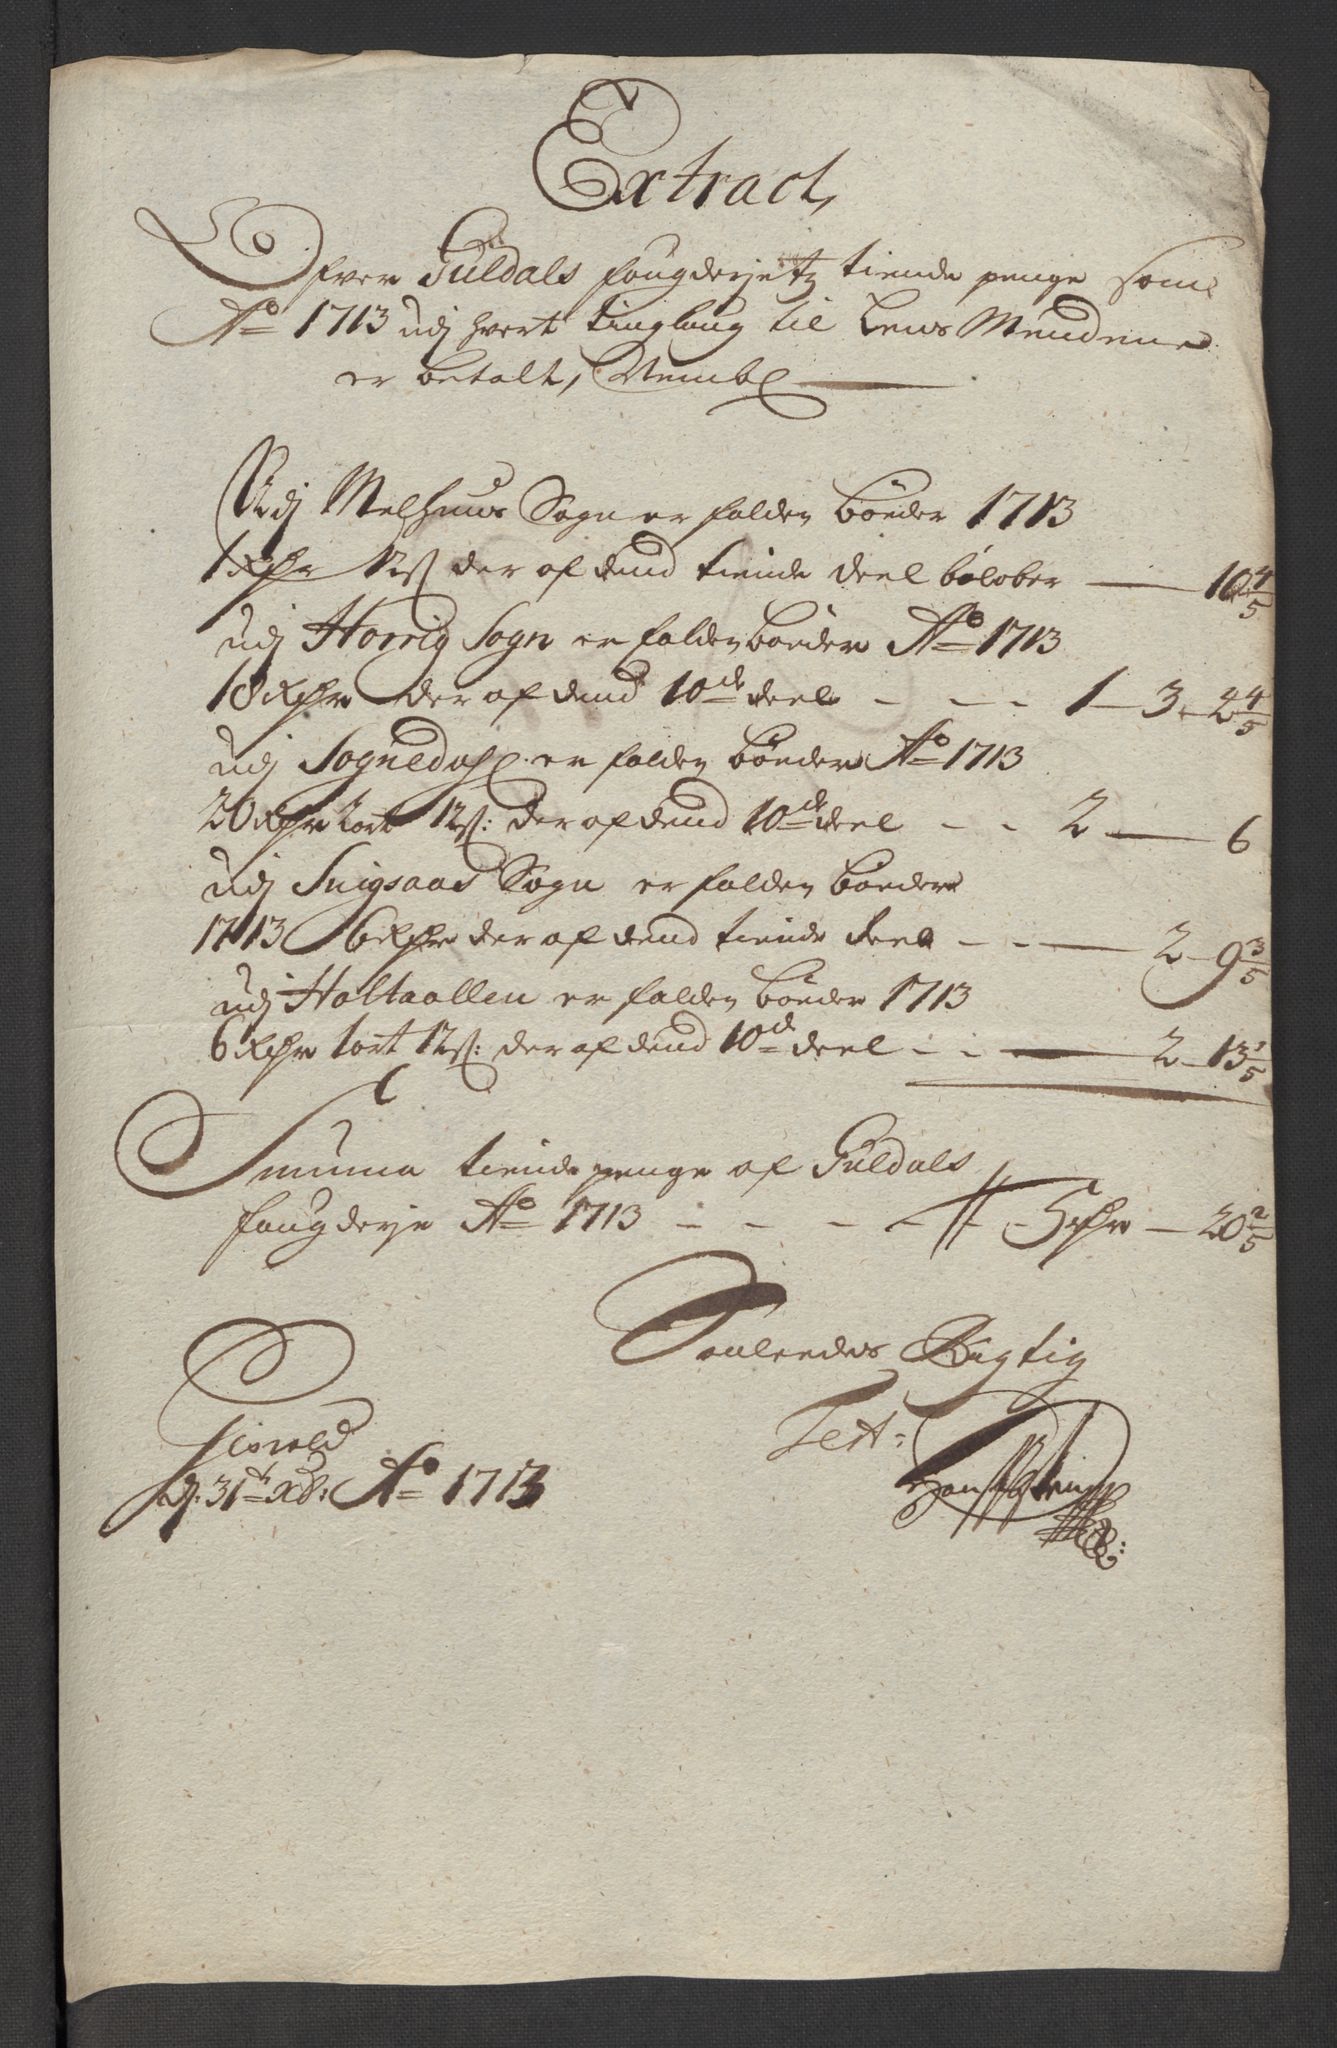 Extract,
Ofver Guldals fougderjetz tiende penge som
Ao 1713 udj hvert tinglaug til Lens Mendene
er betalt, Nembl
Udj Melhuus Sogn er falden bøeder 1713
1 Rdr 12 ß der af dend tiende deel beløber — 10 4/5
udj Horrig Sogn er falden bøeder Ao 1713
18 Rdr der af dend 10de deel - - - 1 - 3 - 4/5
udj Sognedahl er falden bøeder Ao 1713
20 Rdr 2 ort 12 ß: der af dend 10de deel - - 2 — 6
udj Snigsaas Sogn er falden bøeder
1713 6 Rdr der af dend tiende deel - - — 2 - 9 3/5
udj Holtaallen er falden bøeder 1713
6 Rdr 1 ort 12 ß: der af dend 10d deel - - — 2 - 13 1/5
Summa tiende penge af Guldals
fougderje Ao 1713 - - - - - 5 rdr — 20 2/5
Saaleedes Rigtig
Test:
d. 31te xb: Ao 1713